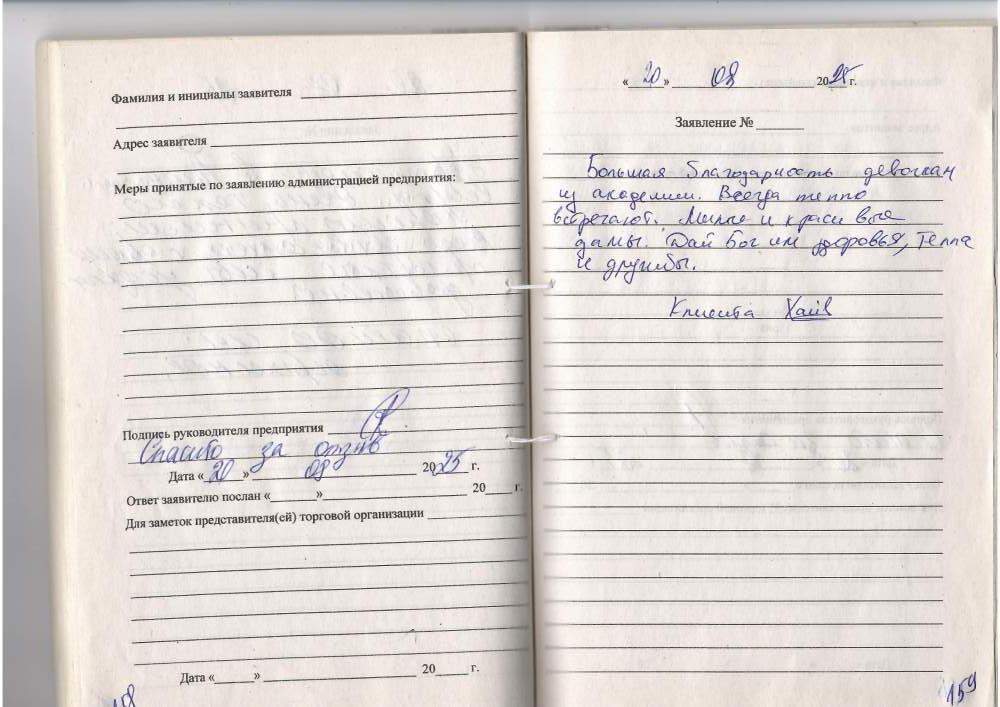 Фамилия и инициалы заявителя
Адрес заявителя
Меры принятые по заявлению администрацией предприятия:
Подпись руководителя предприятия
Спасибо за отзыв
Дата «20» 08 2025 г.
Ответ заявителю послан « » 20 г.
Для заметок представителя(ей) торговой организации
Дата « » 20 г.
158
«20» 08 2025 г.
Заявление №
Большая благодарность девочкам
из академии. Всегда тепло
встречают. Милые и красивые
дамы. Дай Бог им здоровья, тепла
и дружбы.
Клиента
159